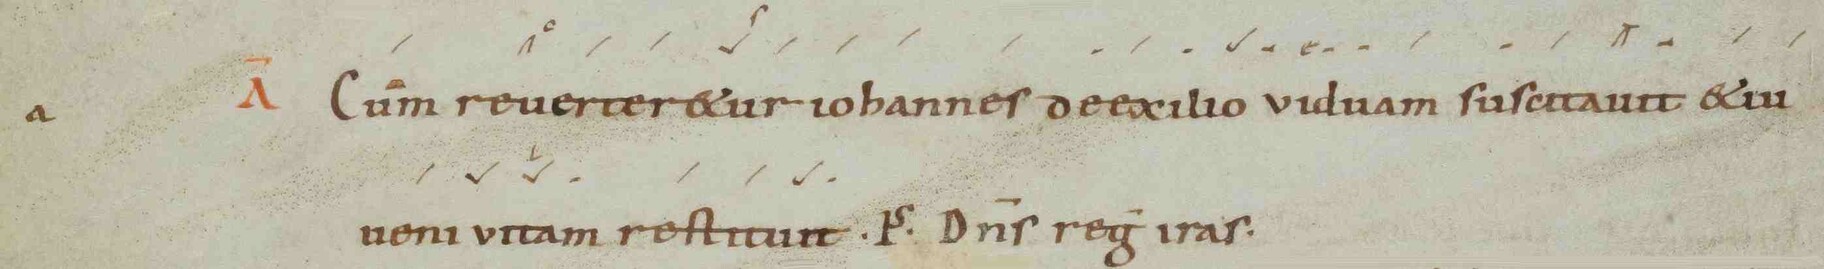 a A̅ Cu̅m reuerter&ur iohannes deexilio viduam suscitauit &iu
ueni vitam restituit . Ps. Dn̅s reg̅ iras.